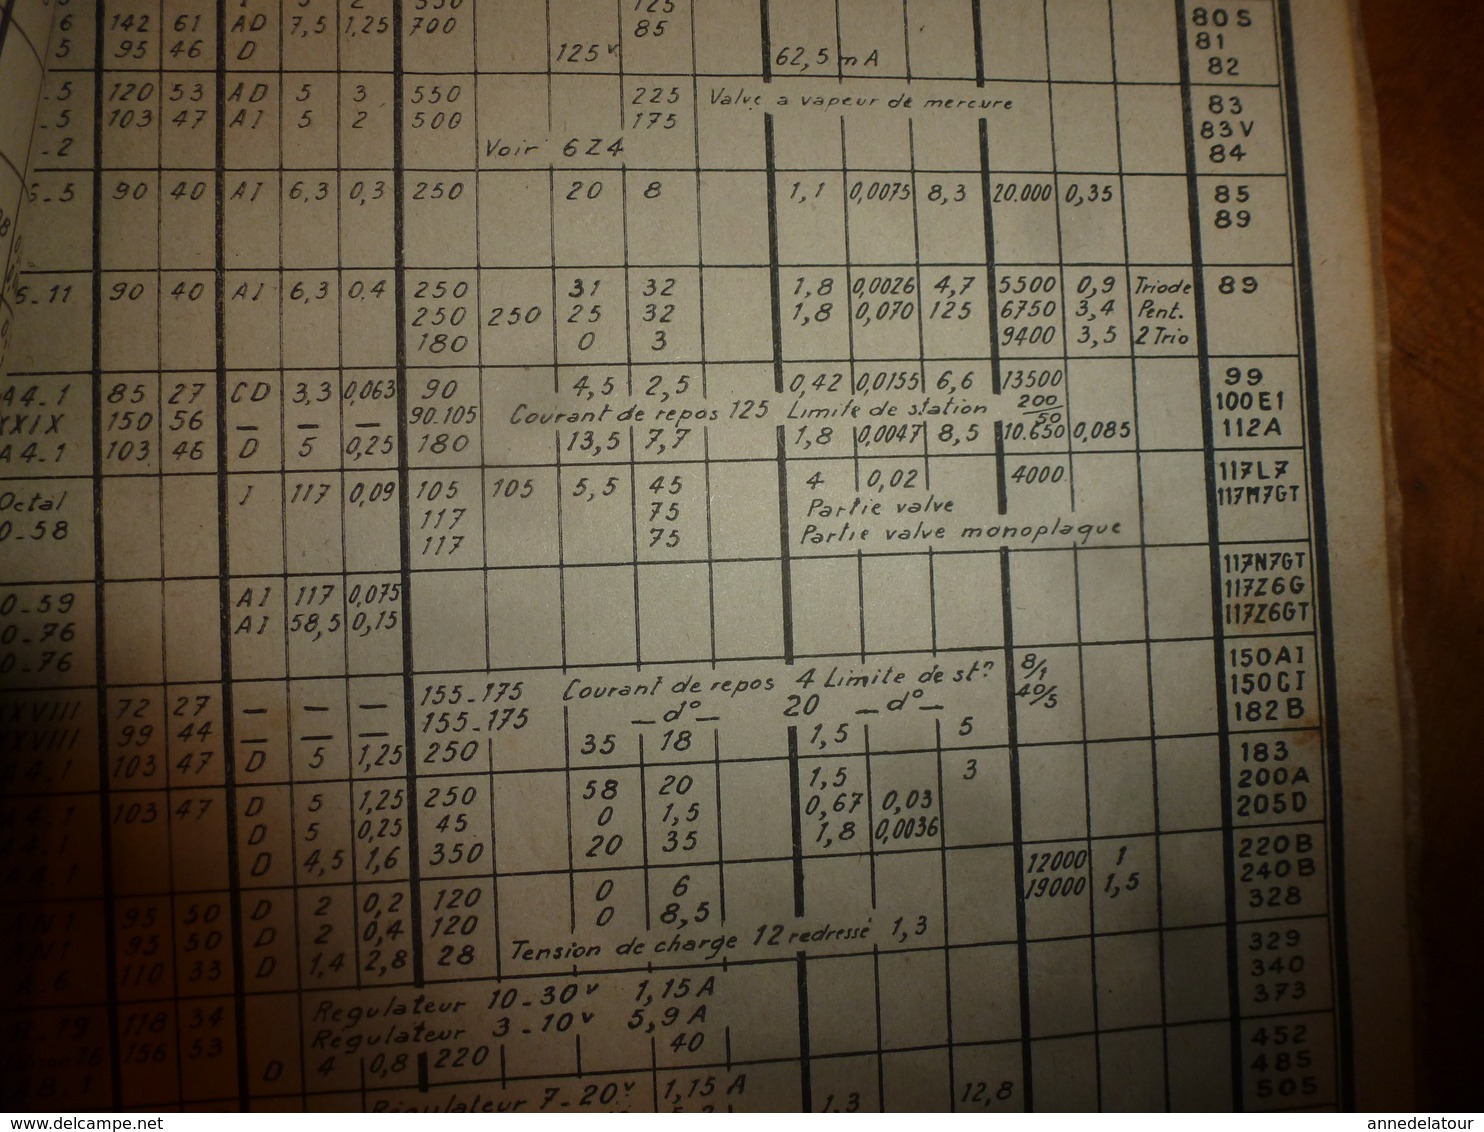 6 142 61 AD 7,5 1,25 700 85 80S
5 95 46 D 125v 62,5 mA 81
82
.5 120 53 AD 5 3 550 225 Valve a vapeur de mercure 83
.5 103 47 AI 5 2 500 175 83V
.2 Voir 6Z4 84
.5 90 40 AI 6,3 0,3 250 20 8 1,1 0,0075 8,3 20.000 0,35 85
89
5.11 90 40 AI 6,3 0.4 250 31 32 1,8 0,0026 4,7 5500 0,9 Triode 89
250 250 25 32 1,8 0,070 125 6750 3,4 Pent.
180 0 3 9400 3,5 2 Trio
A4.1 85 27 CD 3,3 0,063 90 4,5 2,5 0,42 0,0155 6,6 13500 99
XXIX 150 56 — — — 90.105 Courant de repos 125 Limite de station 200/50 100E1
A4.1 103 46 D 5 0,25 180 13,5 7,7 1,8 0,0047 8,5 10.650 0,085 112A
Octal I 117 0,09 105 105 5,5 45 4 0,02 4000 117L7
0.58 117 75 Partie valve 117M7GT
117 75 Partie valve monoplaque
0.59 AI 117 0,075 117N7GT
0.76 AI 58,5 0,15 117Z6G
0.76 117Z6GT
XXVIII 72 27 — — — 155.175 Courant de repos 4 Limite de stn 8/1 150AI
XXVIII 99 44 — — — 155.175 — d° — 20 — d° — 40/5 150CI
A4.1 103 47 D 5 1,25 250 35 18 1,5 5 182B
A4.1 103 47 D 5 1,25 250 58 20 1,5 3 183
D 5 0,25 45 0 1,5 0,67 0,03 200A
D 4,5 1,6 350 20 35 1,8 0,0036 205D
95 50 D 2 0,2 120 0 6 12000 1 220B
95 50 D 2 0,4 120 0 8,5 19000 1,5 240B
110 33 D 1,4 2,8 28 Tension de charge 12 redressé 1,3 328
118 34 Régulateur 10-30v 1,15 A 329
156 53 Régulateur 3-10v 5,9 A 340
D 4 0,8 220 40 373
Régulateur 7-20v 1,15 A 452
1,3 12,8 485
505
annedelatour